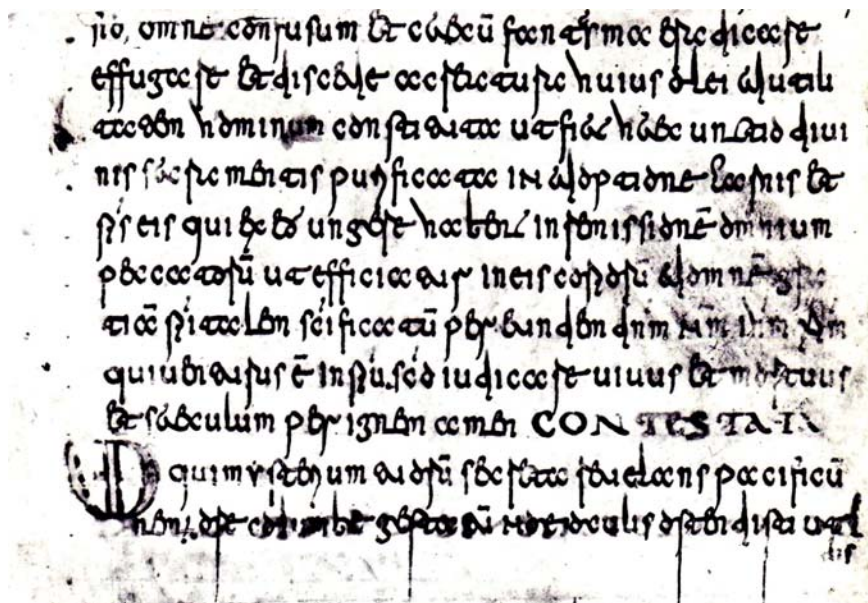 rio, omne confusum et caecū fantasma eradicare
effugare et discede a creatura huius olei ad utili
tatem hominum constituta ut fiat haec unctio diui
nis sacramentis purificata in adoptione carnis et
sps eis qui ex eo ungere habent in remissionē omnium
peccatorū ut efficiatur in eis cor purū ad omnē gra
tiā spitalem scificatū per eundem dnm nm ihm xpm
qui uenturus ē in spu sco iudicare uiuus et mortuus
et saeculum per ignem amen CONTESTAT
Ds qui mysterium tuorū secreta reuelans pacificū
nemore columbe gestatū noe oculis ostendisti ut